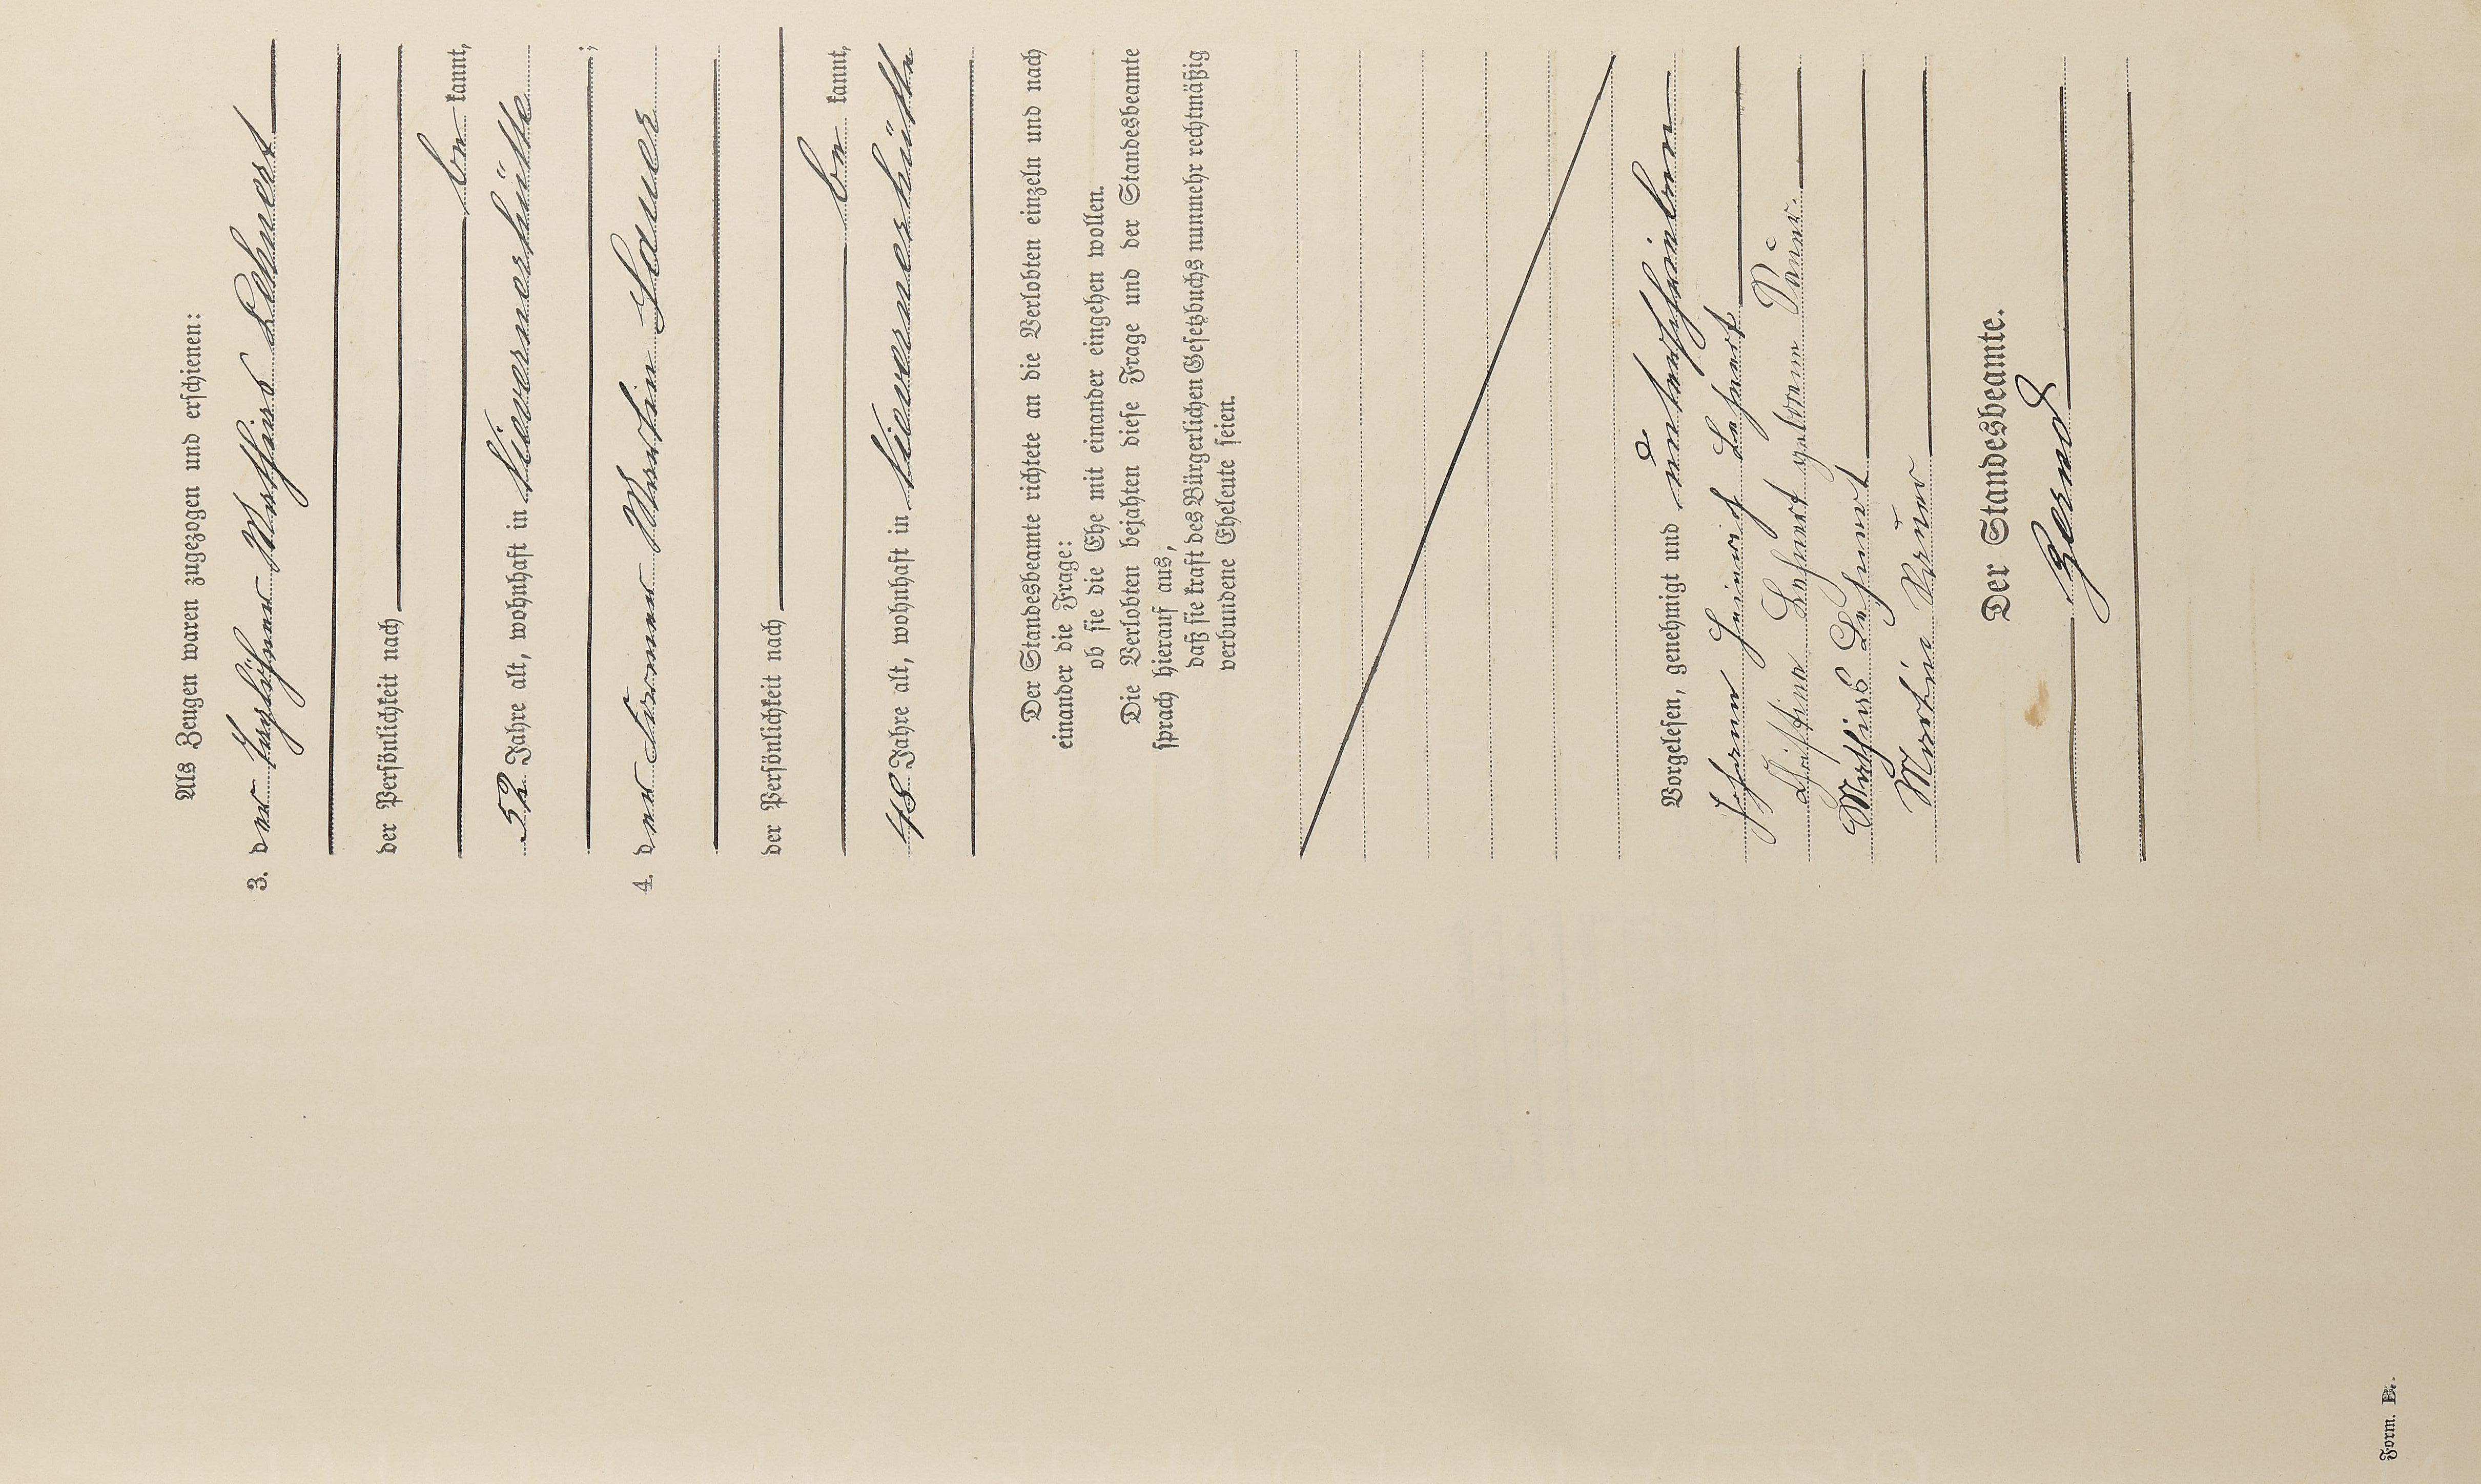 Als Zeugen waren zugezogen und erschienen:
3. der Tagelöhner Mathias Lehnert
der Persönlichkeit nach
be kannt,
52 Jahre alt, wohnhaft in Nievernerhütte
;
4. der Former Martin Sauer
der Persönlichkeit nach
be kannt,
48 Jahre alt, wohnhaft in Nievernerhütte
Der Standesbeamte richtete an die Verlobten einzeln und nach
einander die Frage:
ob sie die Ehe mit einander eingehen wollen.
Die Verlobten bejahten diese Frage und der Standesbeamte
sprach hierauf aus,
daß sie kraft des Bürgerlichen Gesetzbuchs nunmehr rechtmäßig
verbundene Eheleute seien.
Vorgelesen, genehmigt und unterschrieben
Johann Heinrich Lehnert
Christine Lehnert geborene Sauer.
Mathias Lehnert
Martin Sauer
Der Standesbeamte.
Form. B.